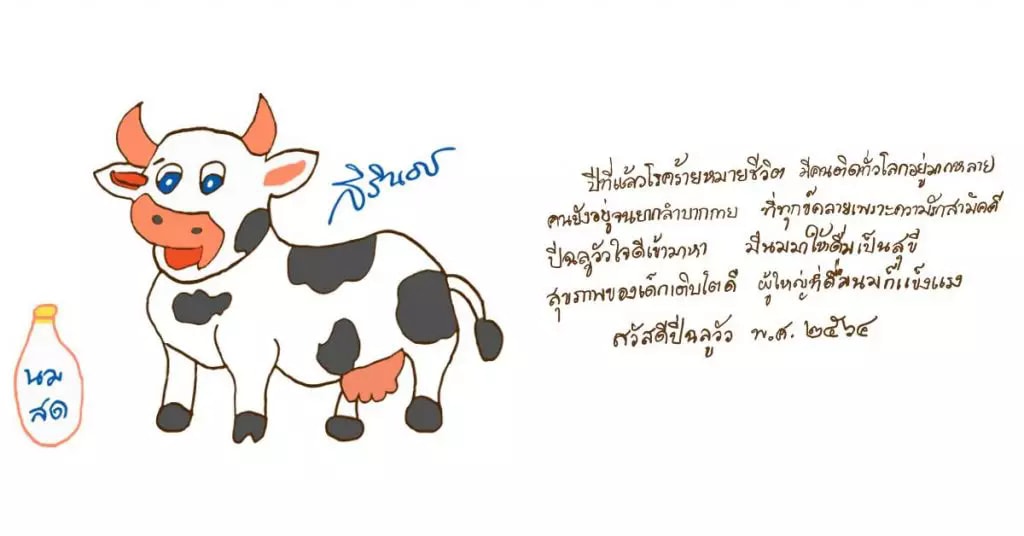 นม
สด
สิรินธร
ปีที่แล้วโรคร้ายหมายชีวิต มีคนติดทั่วโลกอยู่มากหลาย
คนยังอยู่จนยากลำบากกาย ที่ทุกข์คลายเพราะความรักสามัคคี
ปีฉลูวัวใจดีเข้ามาหา มีนมมาให้ดื่มเป็นสุขี
สุขภาพของเด็กเติบโตดี ผู้ใหญ่ที่ดื่มนมก็แข็งแรง
สวัสดีปีฉลูวัว พ.ศ. ๒๕๖๔